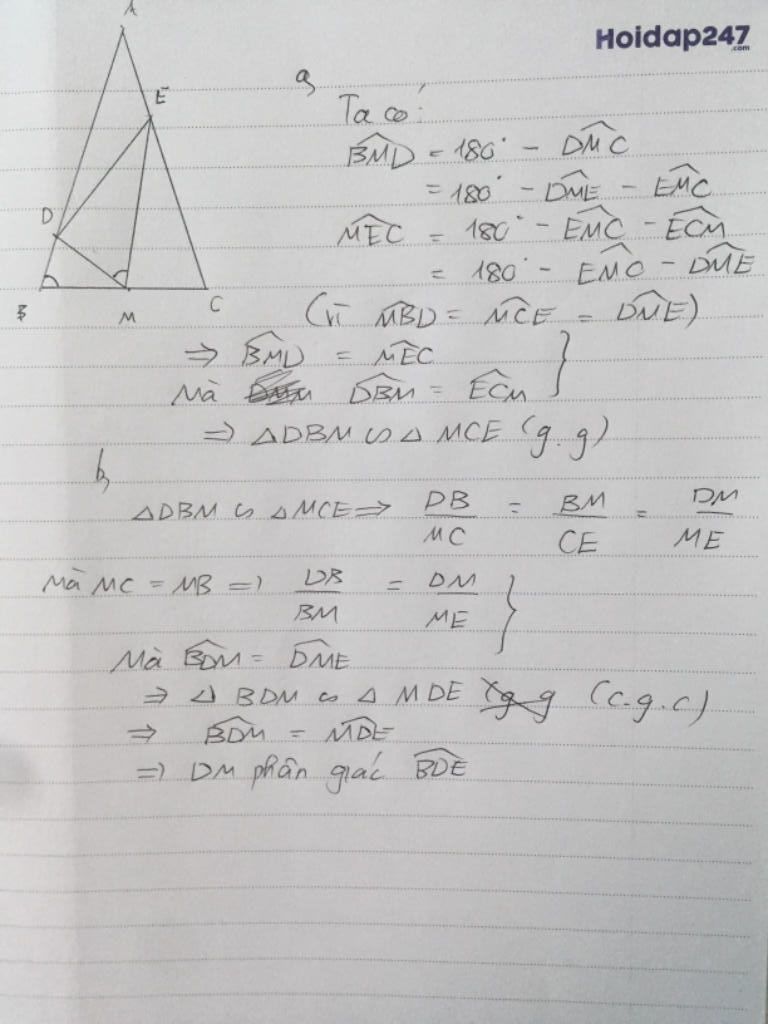 Hoidap247
.com
A
E
D
B
M
C
a,
Ta có:
BMD = 180° - DMC
= 180° - DME - EMC
MEC = 180° - EMC - ECM
= 180° - EMC - DME
(vì MBD = MCE = DME)
⇒ BMD = MEC
Mà DBM = ECM
⇒ △DBM ∽ △MCE (g.g)
b,
△DBM ∽ △MCE ⇒ DB/MC = BM/CE = DM/ME
Mà MC = MB ⇒ DB/BM = DM/ME
Mà BDM = DME
⇒ △ BDM ∽ △ MDE (c.g.c)
⇒ BDM = MDE
⇒ DM phân giác BDE